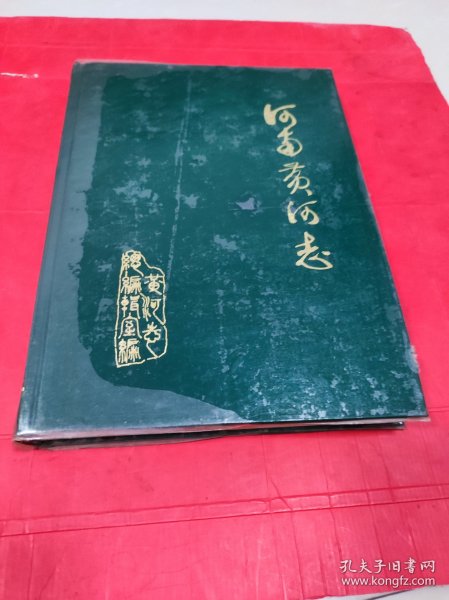 河南黄河志
黄河志
总编辑室编
孔夫子旧书网
www.kongfz.com